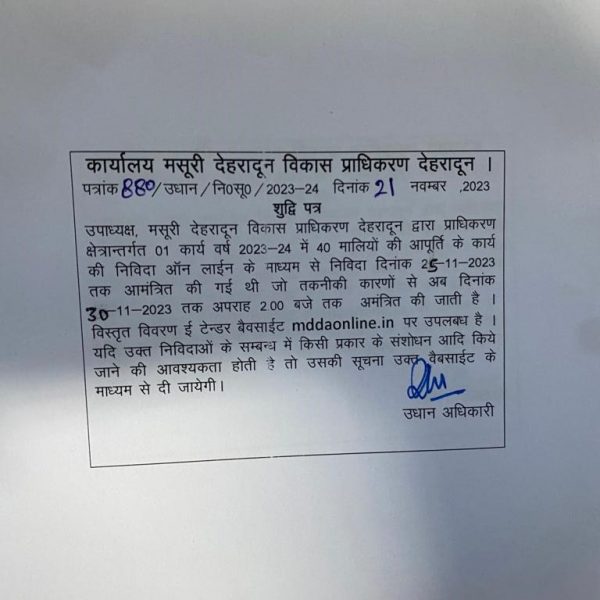 कार्यालय मसूरी देहरादून विकास प्राधिकरण देहरादून ।
पत्रांक 880/उधान/नि0सू0/2023-24 दिनांक 21 नवम्बर ,2023
शुद्वि पत्र
उपाध्यक्ष, मसूरी देहरादून विकास प्राधिकरण देहरादून द्वारा प्राधिकरण
क्षेत्रान्तर्गत 01 कार्य वर्ष 2023-24 में 40 मालियों की आपूर्ति के कार्य
की निविदा ऑन लाईन के माध्यम से निविदा दिनांक 25-11-2023
तक आमंत्रित की गई थी जो तकनीकी कारणों से अब दिनांक
30-11-2023 तक अपराह 2.00 बजे तक अमंत्रित की जाती है ।
विस्तृत विवरण ई टेन्डर बैवसाईट mddaonline.in पर उपलबध है ।
यदि उक्त निविदाओं के सम्बन्ध में किसी प्रकार के संशोधन आदि किये
जाने की आवश्यकता होती है तो उसकी सूचना उक्त वैबसाईट के
माध्यम से दी जायेगी।
उधान अधिकारी